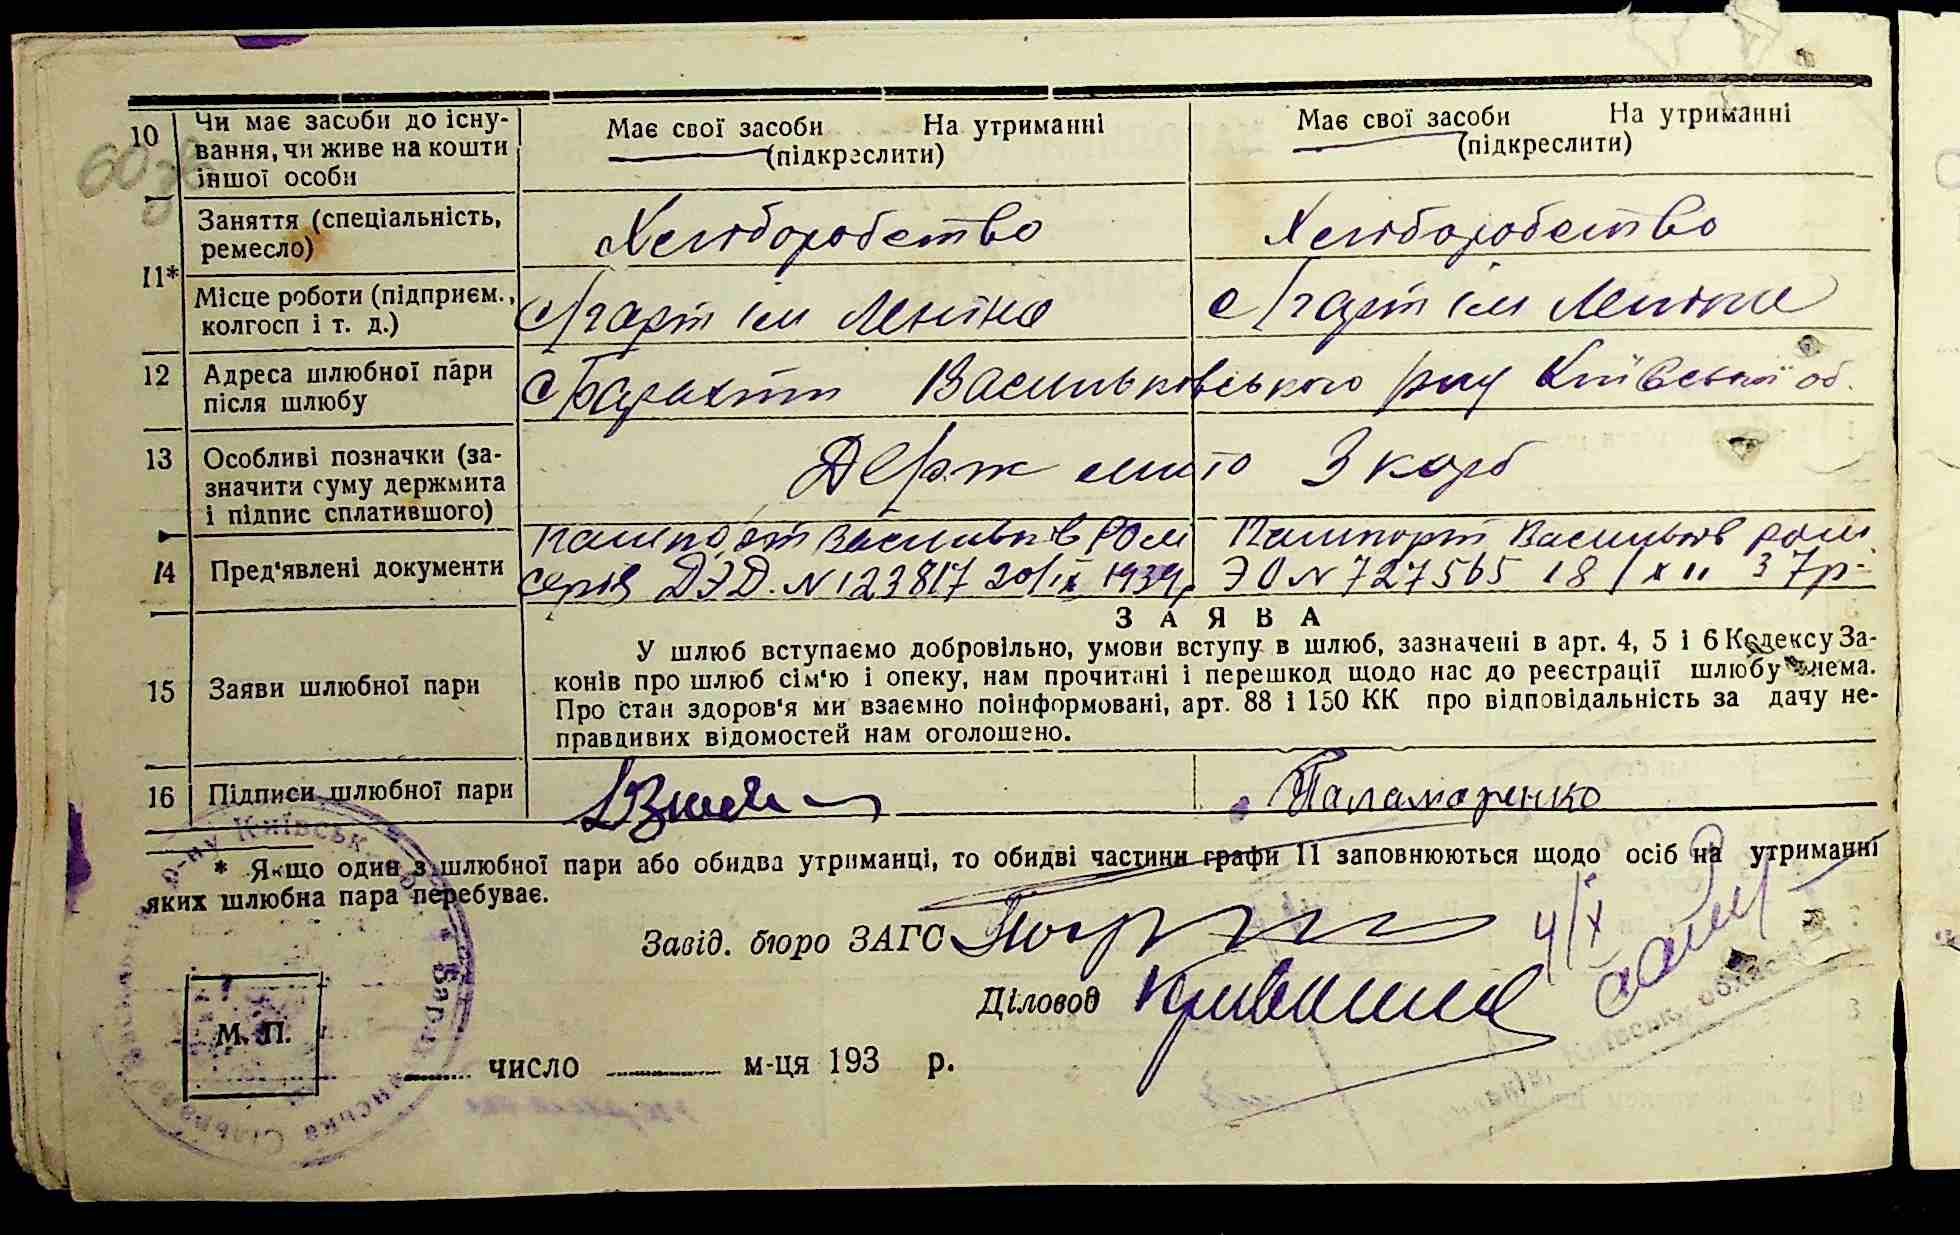 10 Чи має засоби до існу-
вання, чи живе на кошти
іншої особи
Має свої засоби На утриманні
(підкреслити)
Має свої засоби На утриманні
(підкреслити)
11*
Заняття (спеціальність,
ремесло)
Хліборобство
Хліборобство
Місце роботи (підприєм.,
колгосп і т. д.)
с/г арт ім Леніна
с/г арт ім Леніна
12 Адреса шлюбної пари
після шлюбу
с Барахти Васильковського р-ну Київської об.
13 Особливі позначки (за-
значити суму держмита
і підпис сплатившого)
Держ мито 3 карб
14 Пред'явлені документи
Пашпорт Васильків РОМ
серія ДЭД. N 123817 20/ІХ 1939р
Пашпорт Васильків РОМ
ЭО N 727565 18/XII 37р-
15 Заяви шлюбної пари
ЗАЯВА
У шлюб вступаємо добровільно, умови вступу в шлюб, зазначені в арт. 4, 5 і 6 Кодексу За-
конів про шлюб сім'ю і опеку, нам прочитані і перешкод щодо нас до реєстрації шлюбу нема.
Про стан здоров'я ми взаємно поінформовані, арт. 88 і 150 КК про відповідальність за дачу не-
правдивих відомостей нам оголошено.
16 Підписи шлюбної пари
Паламаренко
* Якщо один з шлюбної пари або обидва утриманці, то обидві частини графи 11 заповнюються щодо осіб на утриманні
яких шлюбна пара перебуває.
Завід. бюро ЗАГС
4/X
Діловод
М. П.
число м-ця 193 р.